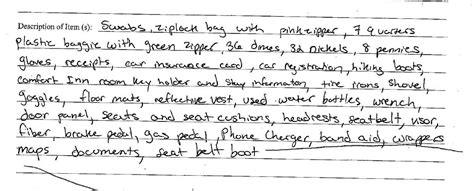 Description of Item (s): Swabs, ziplock bag with pink zipper, 7 quarters
plastic baggie with green zipper, 36 dimes, 32 nickels, 8 pennies,
gloves, receipts, car insurance card, car registration, hiking boots,
comfort Inn room key holder and stay information, tire irons, shovel,
goggles, floor mats, reflective vest, used water bottles, wrench,
door panel, seats and seat cushions, headrests, seatbelt, visor,
fiber, brake pedal, gas pedal, Phone Charger, band aid, wrappers
maps, documents, seat belt boot